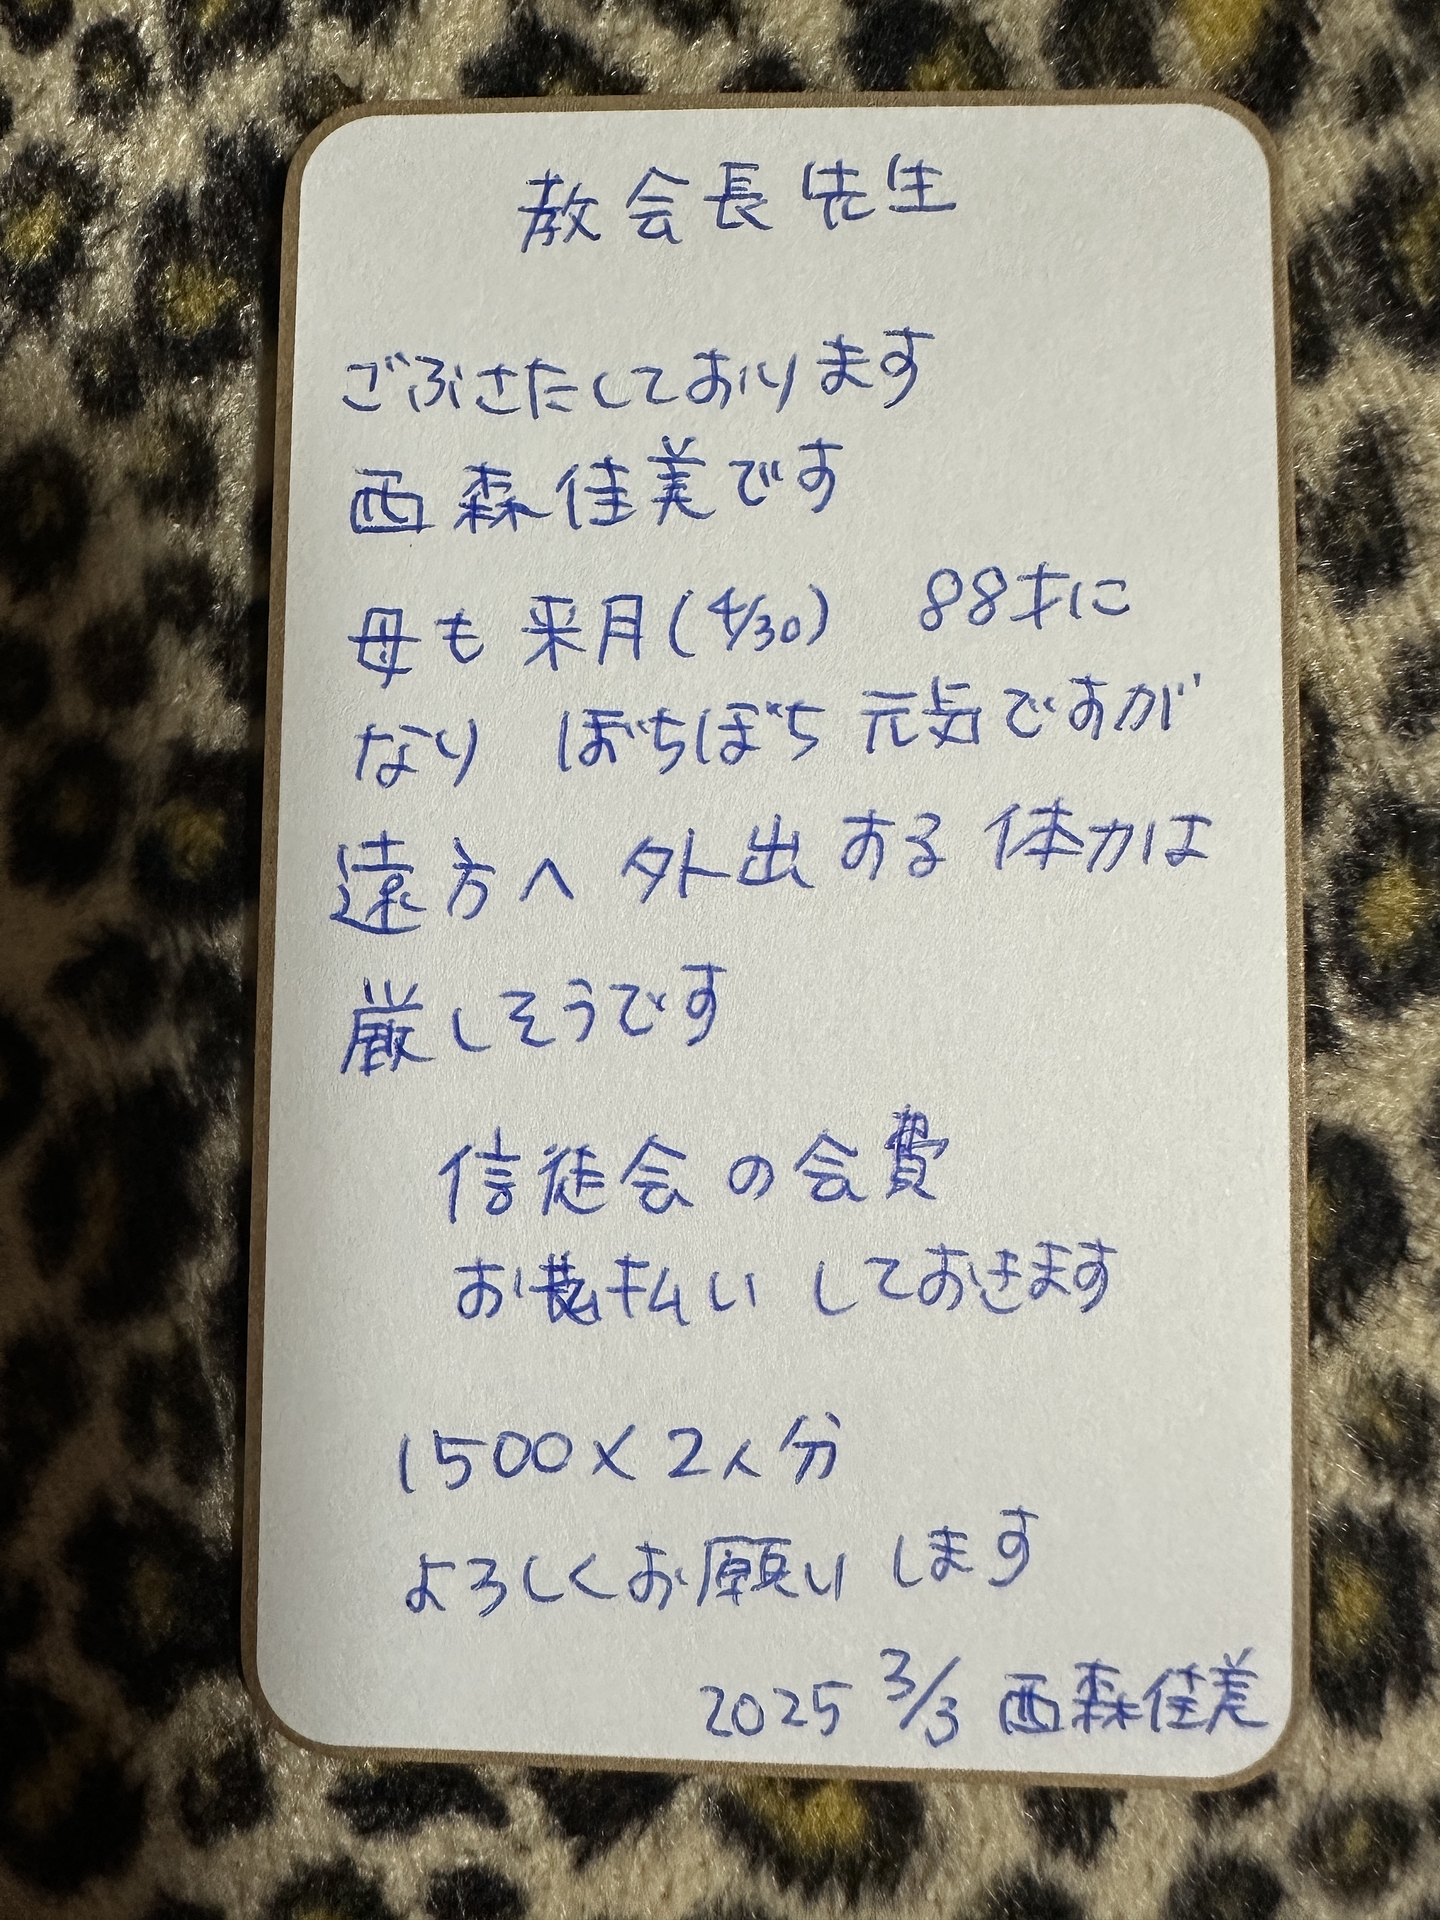 教会長先生
ごぶさたしております
西森佳美です
母も来月(4/30) 88才に
なり ぼちぼち元気ですが
遠方へ外出する体力は
厳しそうです
信徒会の会費
お払いしておきます
1500×2人分
よろしくお願いします
2025 3/3 西森佳美